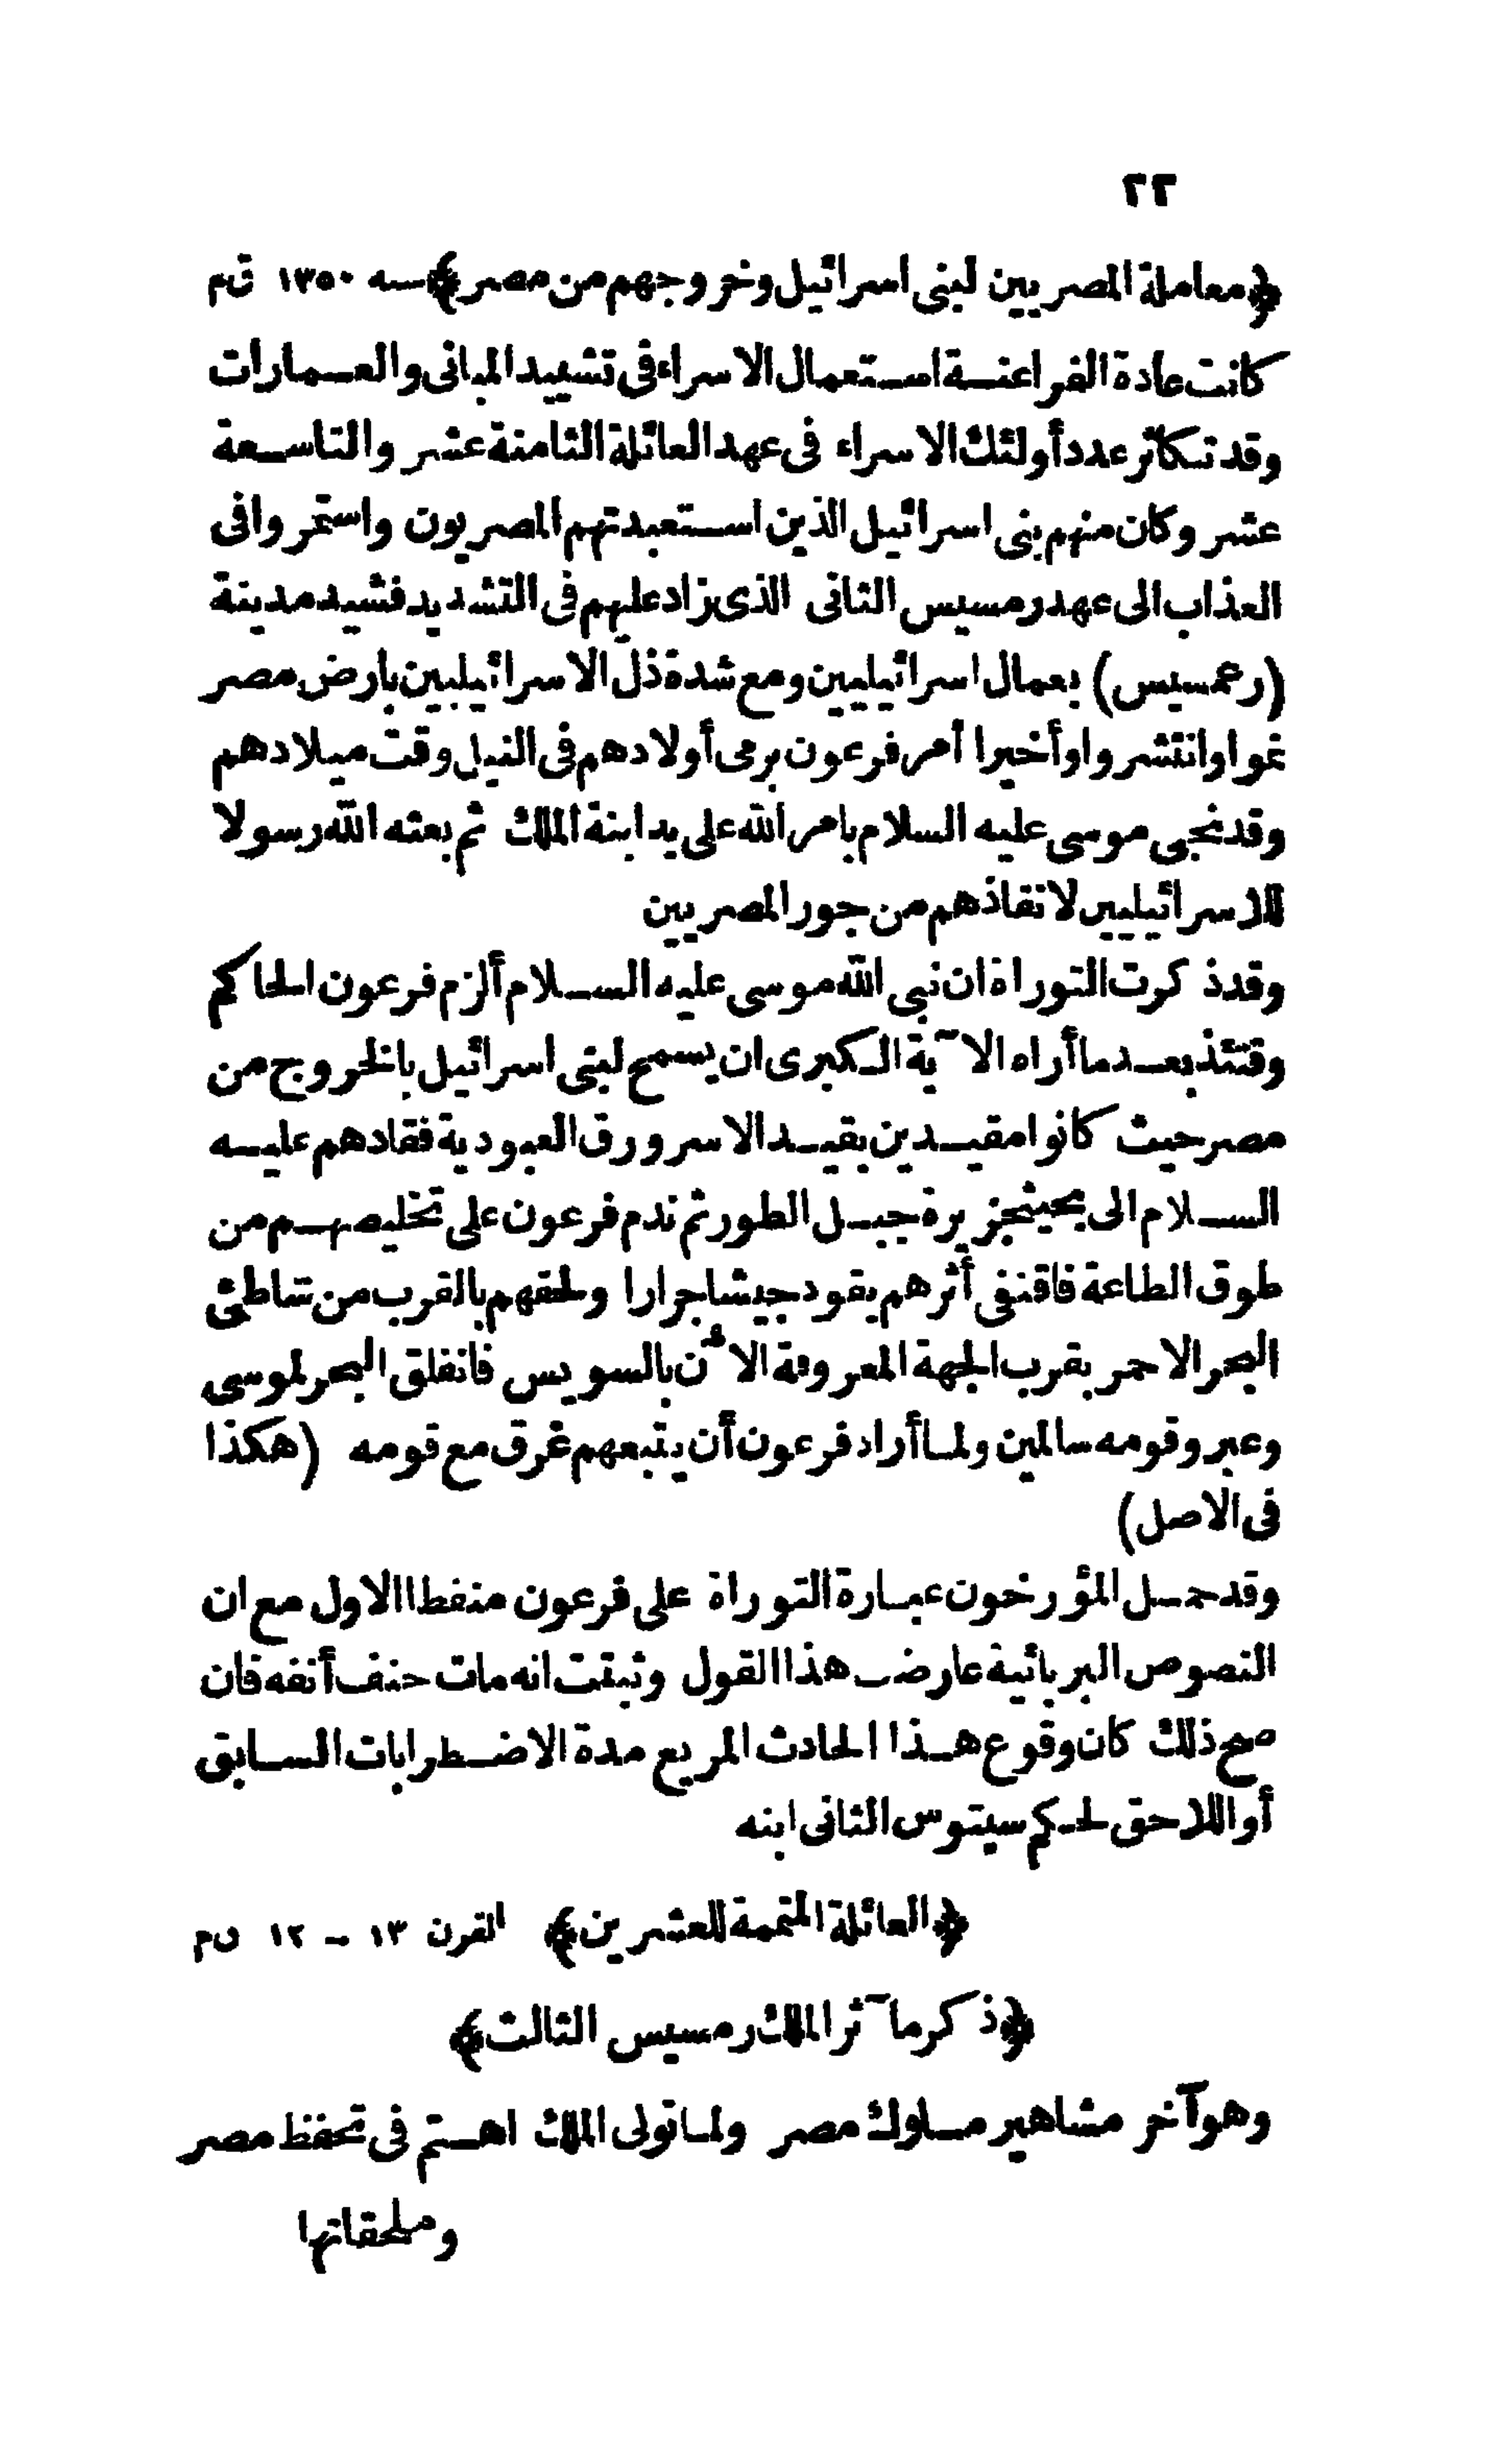 ٢٢
﴿معاملة المصريين لبنى اسرائيل وخروجهم من مصر﴾ سنه ١٣٥٠ ق م
كانت عادة الفراعنة استعمال الاسراء فى تشييد المبانى والعمارات
وقد تكاثر عدد أولئك الاسراء فى عهد العائلة الثامنة عشر والتاسعة
عشر وكان منهم بنى اسرائيل الذين استعبدتهم المصريون واستمروا فى
العذاب الى عهد رمسيس الثانى الذى زاد عليهم فى التشديد فشيد مدينة
(رعمسيس) بعمال اسرائيليين ومع شدة ذل الاسرائيليين بارض مصر
نموا وانتشروا وأخيرا أمر فرعون برمى أولادهم فى النيل وقت ميلادهم
وقد نجى موسى عليه السلام بامر الله على يد ابنة الملك ثم بعثه الله رسولا
للاسرائيليين لانقاذهم من جور المصريين
وقد ذكرت التوراة ان نبى الله موسى عليه السلام ألزم فرعون الحاكم
وقتئذ بعدما أراه الآية الكبرى ان يسمح لبنى اسرائيل بالخروج من
مصر حيث كانوا مقيدين بقيد الاسر ورق العبودية فقادهم عليه
السلام الى بحيثجزيرة جبل الطور ثم ندم فرعون على تخليصهم من
طوق الطاعة فاقتفى أثرهم يقود جيشا جرارا ولحقهم بالقرب من شاطئ
البحر الاحمر بقرب الجهة المعروفة الآن بالسويس فانفلق البحر لموسى
وعبر وقومه سالمين ولما أراد فرعون أن يتبعهم غرق مع قومه (هكذا
فى الاصل)
وقد حمل المؤرخون عبارة التوراة على فرعون منفطا الاول مع ان
النصوص البربائية عارضت هذا القول وثبتت انه مات حتف أنفه فان
صح ذلك كان وقوع هذا الحادث المريع مدة الاضطرابات السابق
أو اللاحق لحكم سيتوس الثانى ابنه
﴿العائلة المتممة للعشرين﴾ القرن ١٣ - ١٢ ق م
﴿ذكر مآثر الملك رمسيس الثالث﴾
وهو آخر مشاهير ملوك مصر ولما تولى الملك اهتم فى تحفظ مصر
وملحقاتها